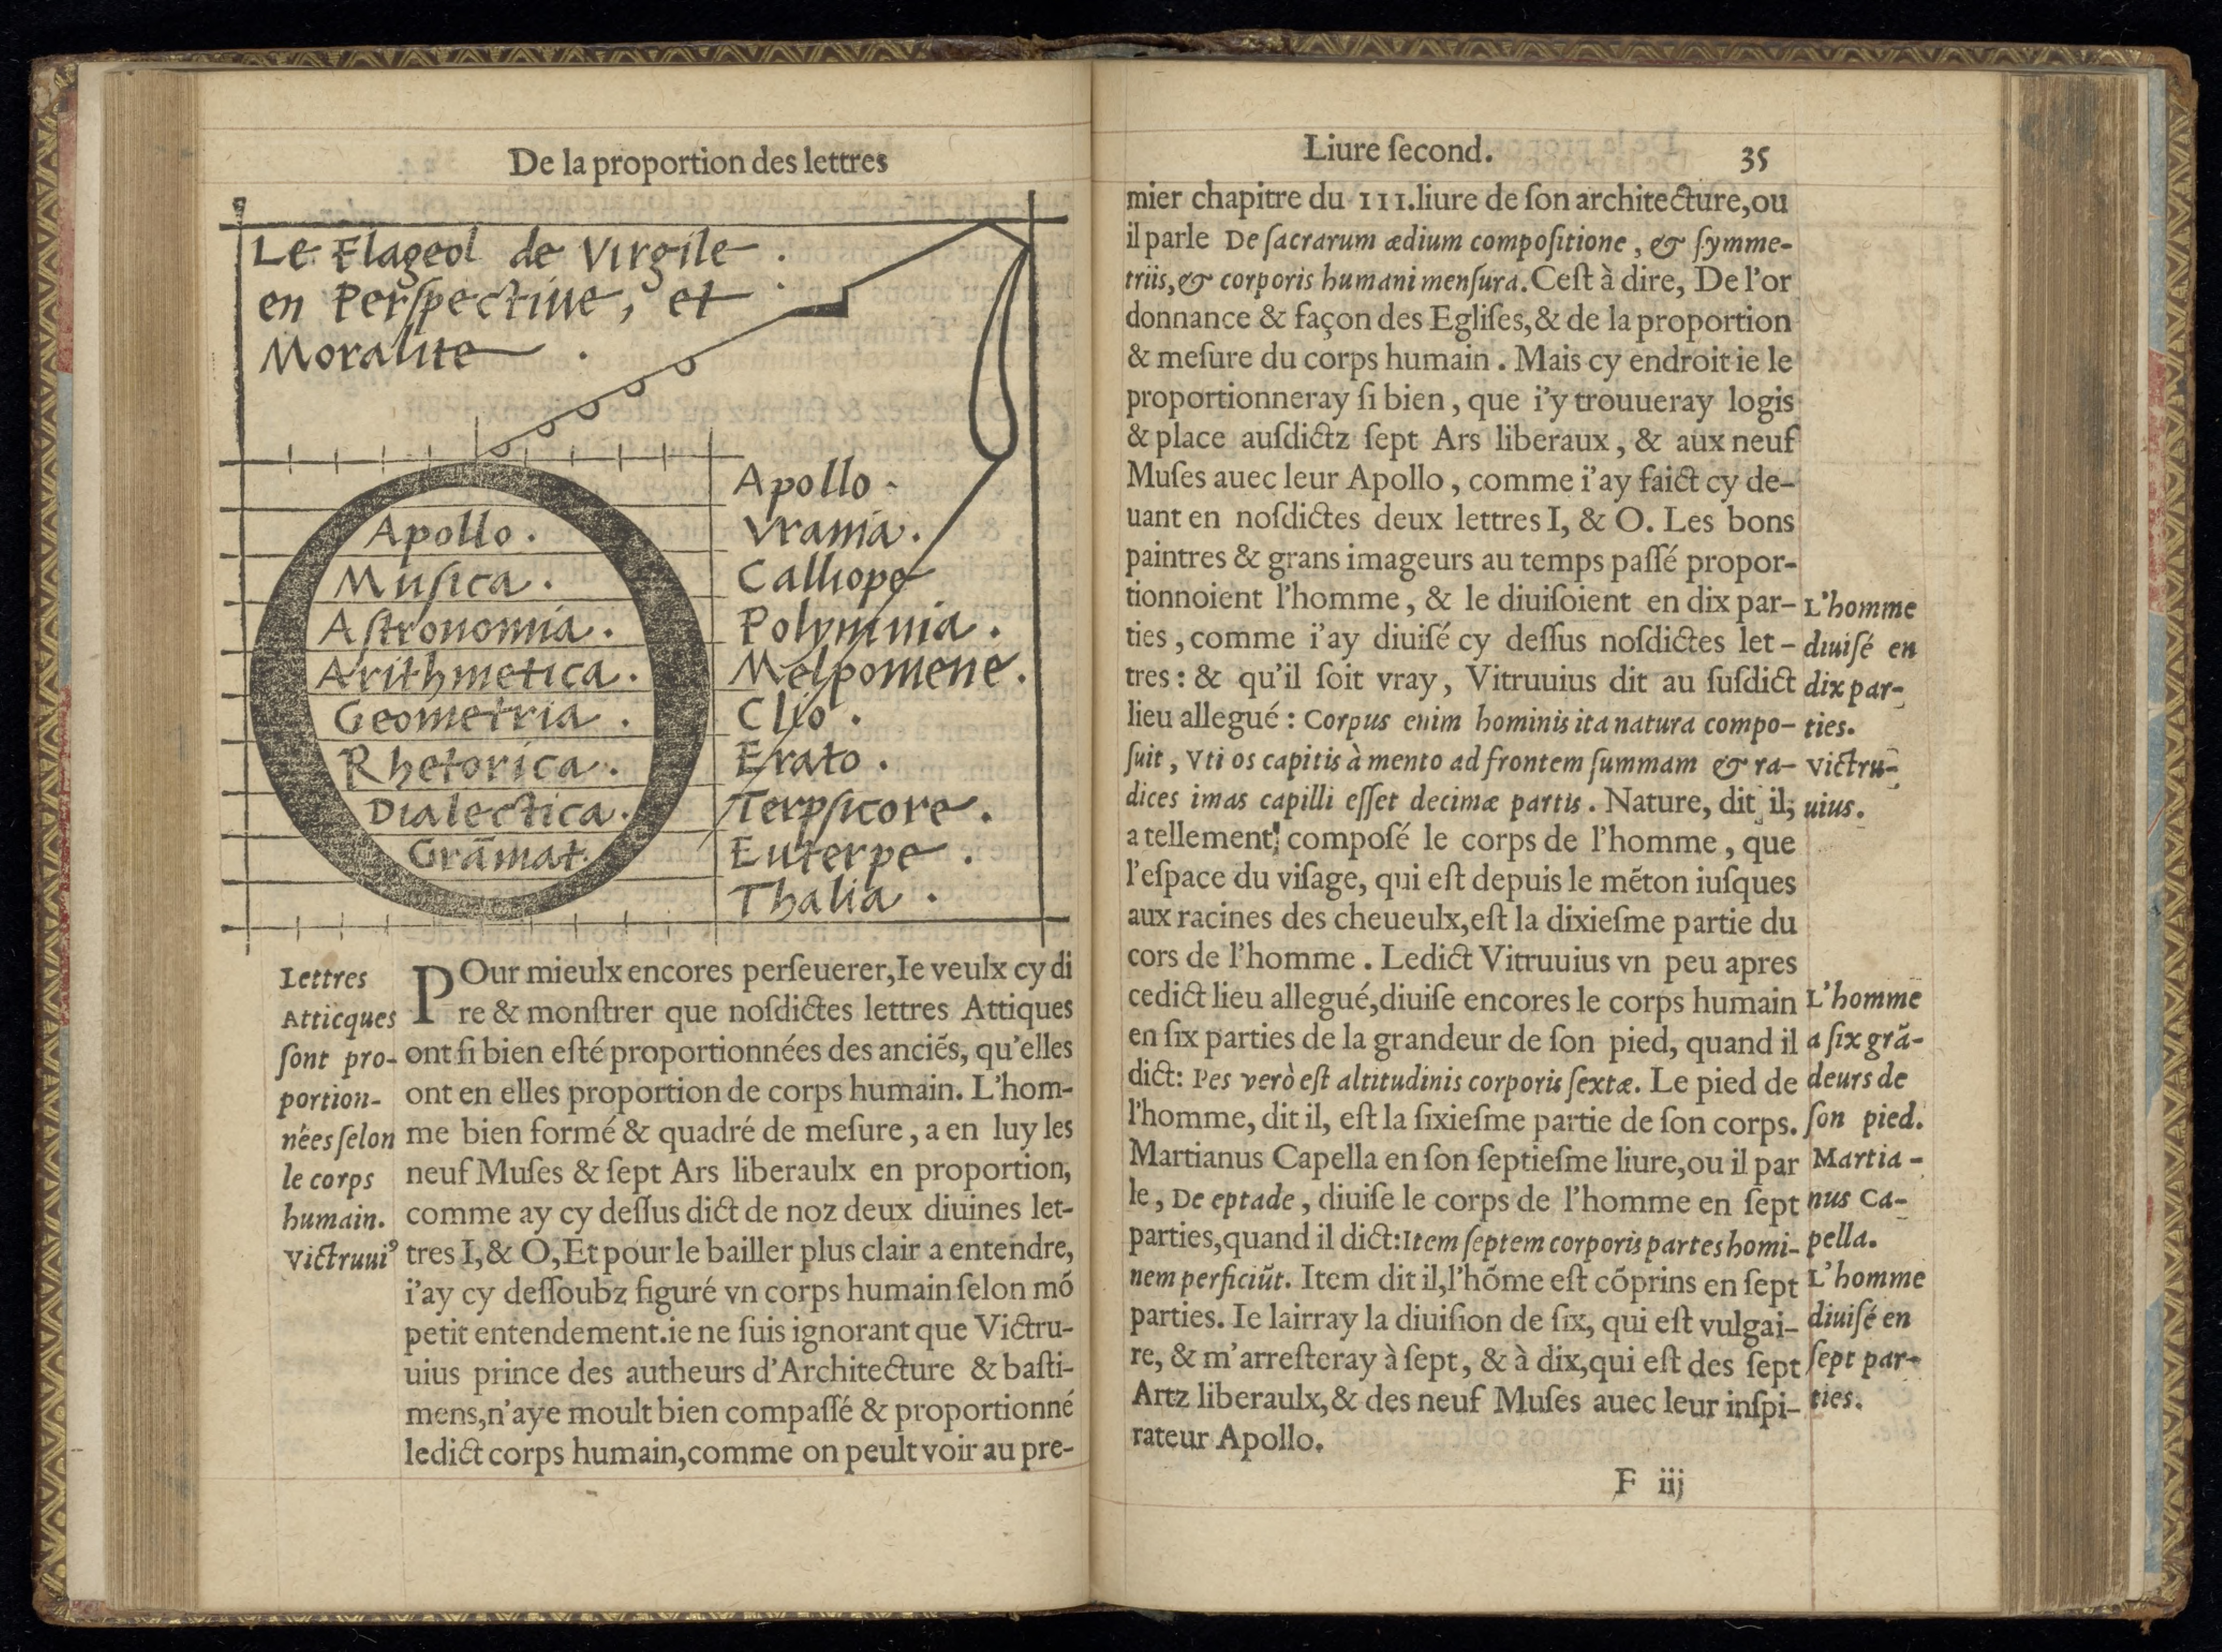 De la proportion des lettres
Le Flageol de Virgile.
en Perſpectiue, et
Moralite.
Apollo.
Muſica.
Aſtronomia.
Arithmetica.
Geometria.
Rhetorica.
Dialectica.
Grãmat.
Apollo.
Vrania.
Calliope
Polymnia.
Melpomene.
Clio.
Erato.
Terpſicore.
Euterpe.
Thalia.
Lettres
Atticques
ſont pro-
portion-
nées ſelon
le corps
humain.
Victruui⁹
POur mieulx encores perſeuerer, Ie veulx cy di
re & monſtrer que noſdictes lettres Attiques
ont ſi bien eſté proportionnées des anciẽs, qu'elles
ont en elles proportion de corps humain. L'hom-
me bien formé & quadré de meſure, a en luy les
neuf Muſes & ſept Ars liberaulx en proportion,
comme ay cy deſſus dict de noz deux diuines let-
tres I, & O, Et pour le bailler plus clair a entendre,
i'ay cy deſſoubz figuré vn corps humain ſelon mõ
petit entendement. ie ne ſuis ignorant que Victru-
uius prince des autheurs d'Architecture & baſti-
mens, n'aye moult bien compaſſé & proportionné
ledict corps humain, comme on peult voir au pre-
Liure ſecond. 35
mier chapitre du III. liure de ſon architecture, ou
il parle De ſacrarum ædium compoſitione, & ſymme-
triis, & corporis humani menſura. Ceſt à dire, De l'or
donnance & façon des Egliſes, & de la proportion
& meſure du corps humain. Mais cy endroit ie le
proportionneray ſi bien, que i'y trouueray logis
& place auſdictz ſept Ars liberaux, & aux neuf
Muſes auec leur Apollo, comme i'ay faict cy de-
uant en noſdictes deux lettres I, & O. Les bons
paintres & grans imageurs au temps paſſé propor-
tionnoient l'homme, & le diuiſoient en dix par-
ties, comme i'ay diuiſé cy deſſus noſdictes let-
tres: & qu'il ſoit vray, Vitruuius dit au ſuſdict
lieu allegué: Corpus enim hominis ita natura compo-
ſuit, Vti os capitis à mento ad frontem ſummam & ra-
dices imas capilli eſſet decimæ partis. Nature, dit il,
a tellement compoſé le corps de l'homme, que
l'eſpace du viſage, qui eſt depuis le mẽton iuſques
aux racines des cheueulx, eſt la dixieſme partie du
cors de l'homme. Ledict Vitruuius vn peu apres
cedict lieu allegué, diuiſe encores le corps humain
en ſix parties de la grandeur de ſon pied, quand il
dict: Pes verò eſt altitudinis corporis ſextæ. Le pied de
l'homme, dit il, eſt la ſixieſme partie de ſon corps.
Martianus Capella en ſon ſeptieſme liure, ou il par
le, De eptade, diuiſe le corps de l'homme en ſept
parties, quand il dict: Item ſeptem corporis partes homi-
nem perficiũt. Item dit il, l'hõme eſt cõprins en ſept
parties. Ie lairray la diuiſion de ſix, qui eſt vulgai-
re, & m'arreſteray à ſept, & à dix, qui eſt des ſept
Artz liberaulx, & des neuf Muſes auec leur inſpi-
rateur Apollo.
L'homme
diuiſé en
dix par-
ties.
Victru-
uius.
L'homme
a ſix grã-
deurs de
ſon pied.
Martia-
nus Ca-
pella.
L'homme
diuiſé en
ſept par-
ties.
F iij